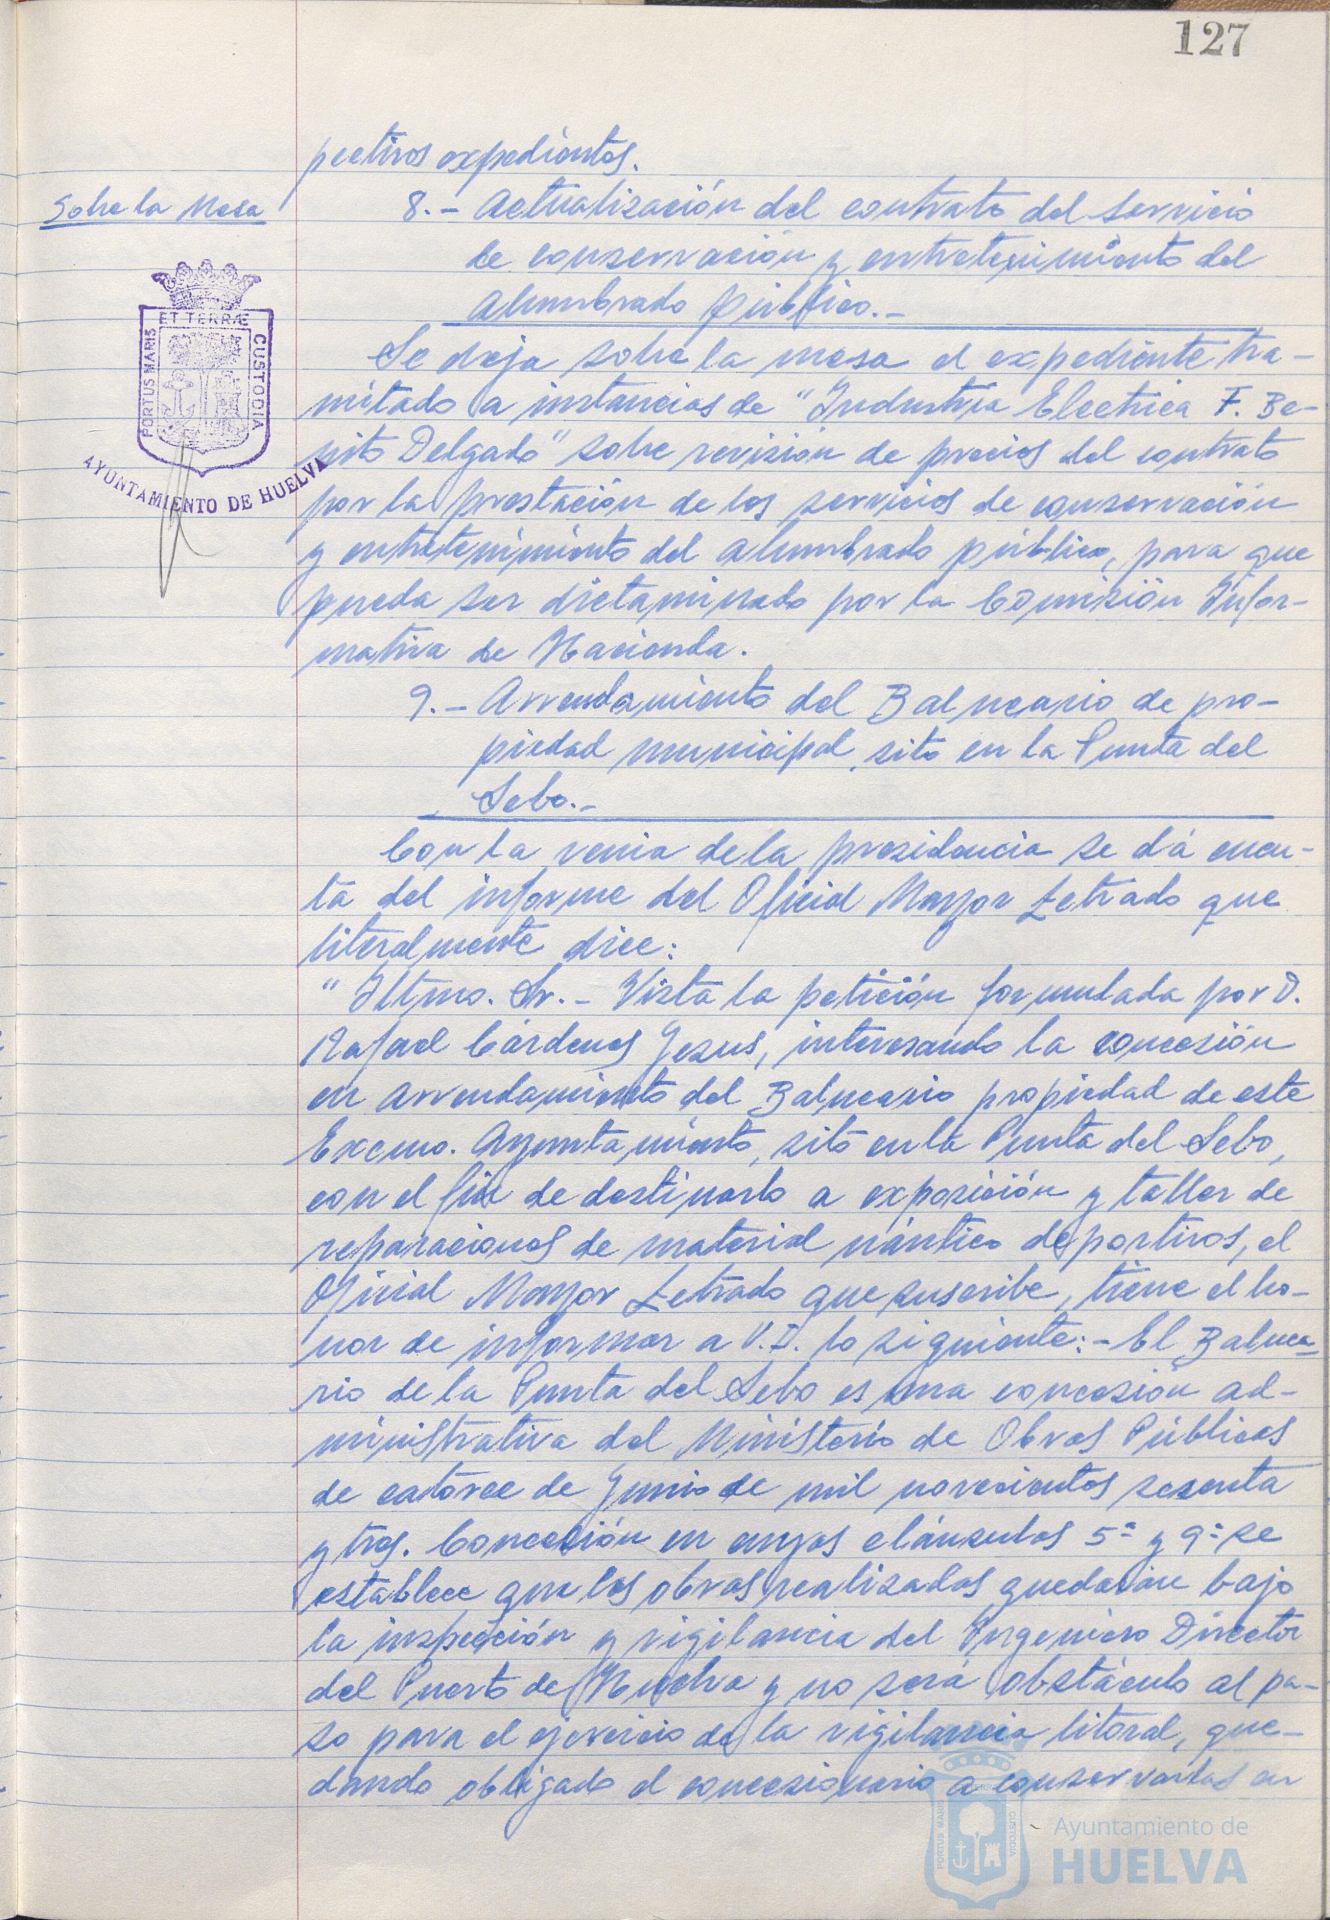 127
pectivos expedientes.
Sobre la Mesa
8.- Actualización del contrato del Servicio
de conservación y entretenimiento del
Alumbrado Público.-
ET TERRÆ
PORTUS MARIS
CUSTODIA
AYUNTAMIENTO DE HUELVA
Se deja sobre la mesa el expediente tra-
mitado a instancias de "Industria Electrica F. Be-
nito Delgado" sobre revisión de precios del contrato
por la prestación de los servicios de conservación
y entretenimiento del alumbrado público, para que
pueda ser dictaminado por la Comisión Infor-
mativa de Hacienda.
9.- Arrendamiento del Balneario de pro-
piedad municipal, sito en la Punta del
Sebo.-
Con la venia de la presidencia se dá cuen-
ta del informe del Oficial Mayor Letrado que
literalmente dice:
"Iltmo. Sr.- Vista la petición formulada por D.
Rafael Cárdenas Jesus, interesando la concesión
en arrendamiento del Balneario propiedad de este
Excmo. Ayuntamiento, sito en la Punta del Sebo,
con el fin de destinarlo a exposición y taller de
reparaciones de material náutico deportivos, el
Oficial Mayor Letrado que suscribe, tiene el ho-
nor de informar a V.I. lo siguiente:- El Balnea-
rio de la Punta del Sebo es una concesión ad-
ministrativa del Ministerio de Obras Públicas
de catorce de Junio de mil novecientos sesenta
y tres. Concesión en cuyas cláusulas 5ª y 9ª se
establece que las obras realizadas quedarían bajo
la inspección y vigilancia del Ingeniero Director
del Puerto de Huelva y no será obstáculo al pa-
so para el ejercicio de la vigilancia litoral, que-
dando obligado el concesionario a conservarlas en
PORTUS MARIS
CUSTODIA
Ayuntamiento de
HUELVA